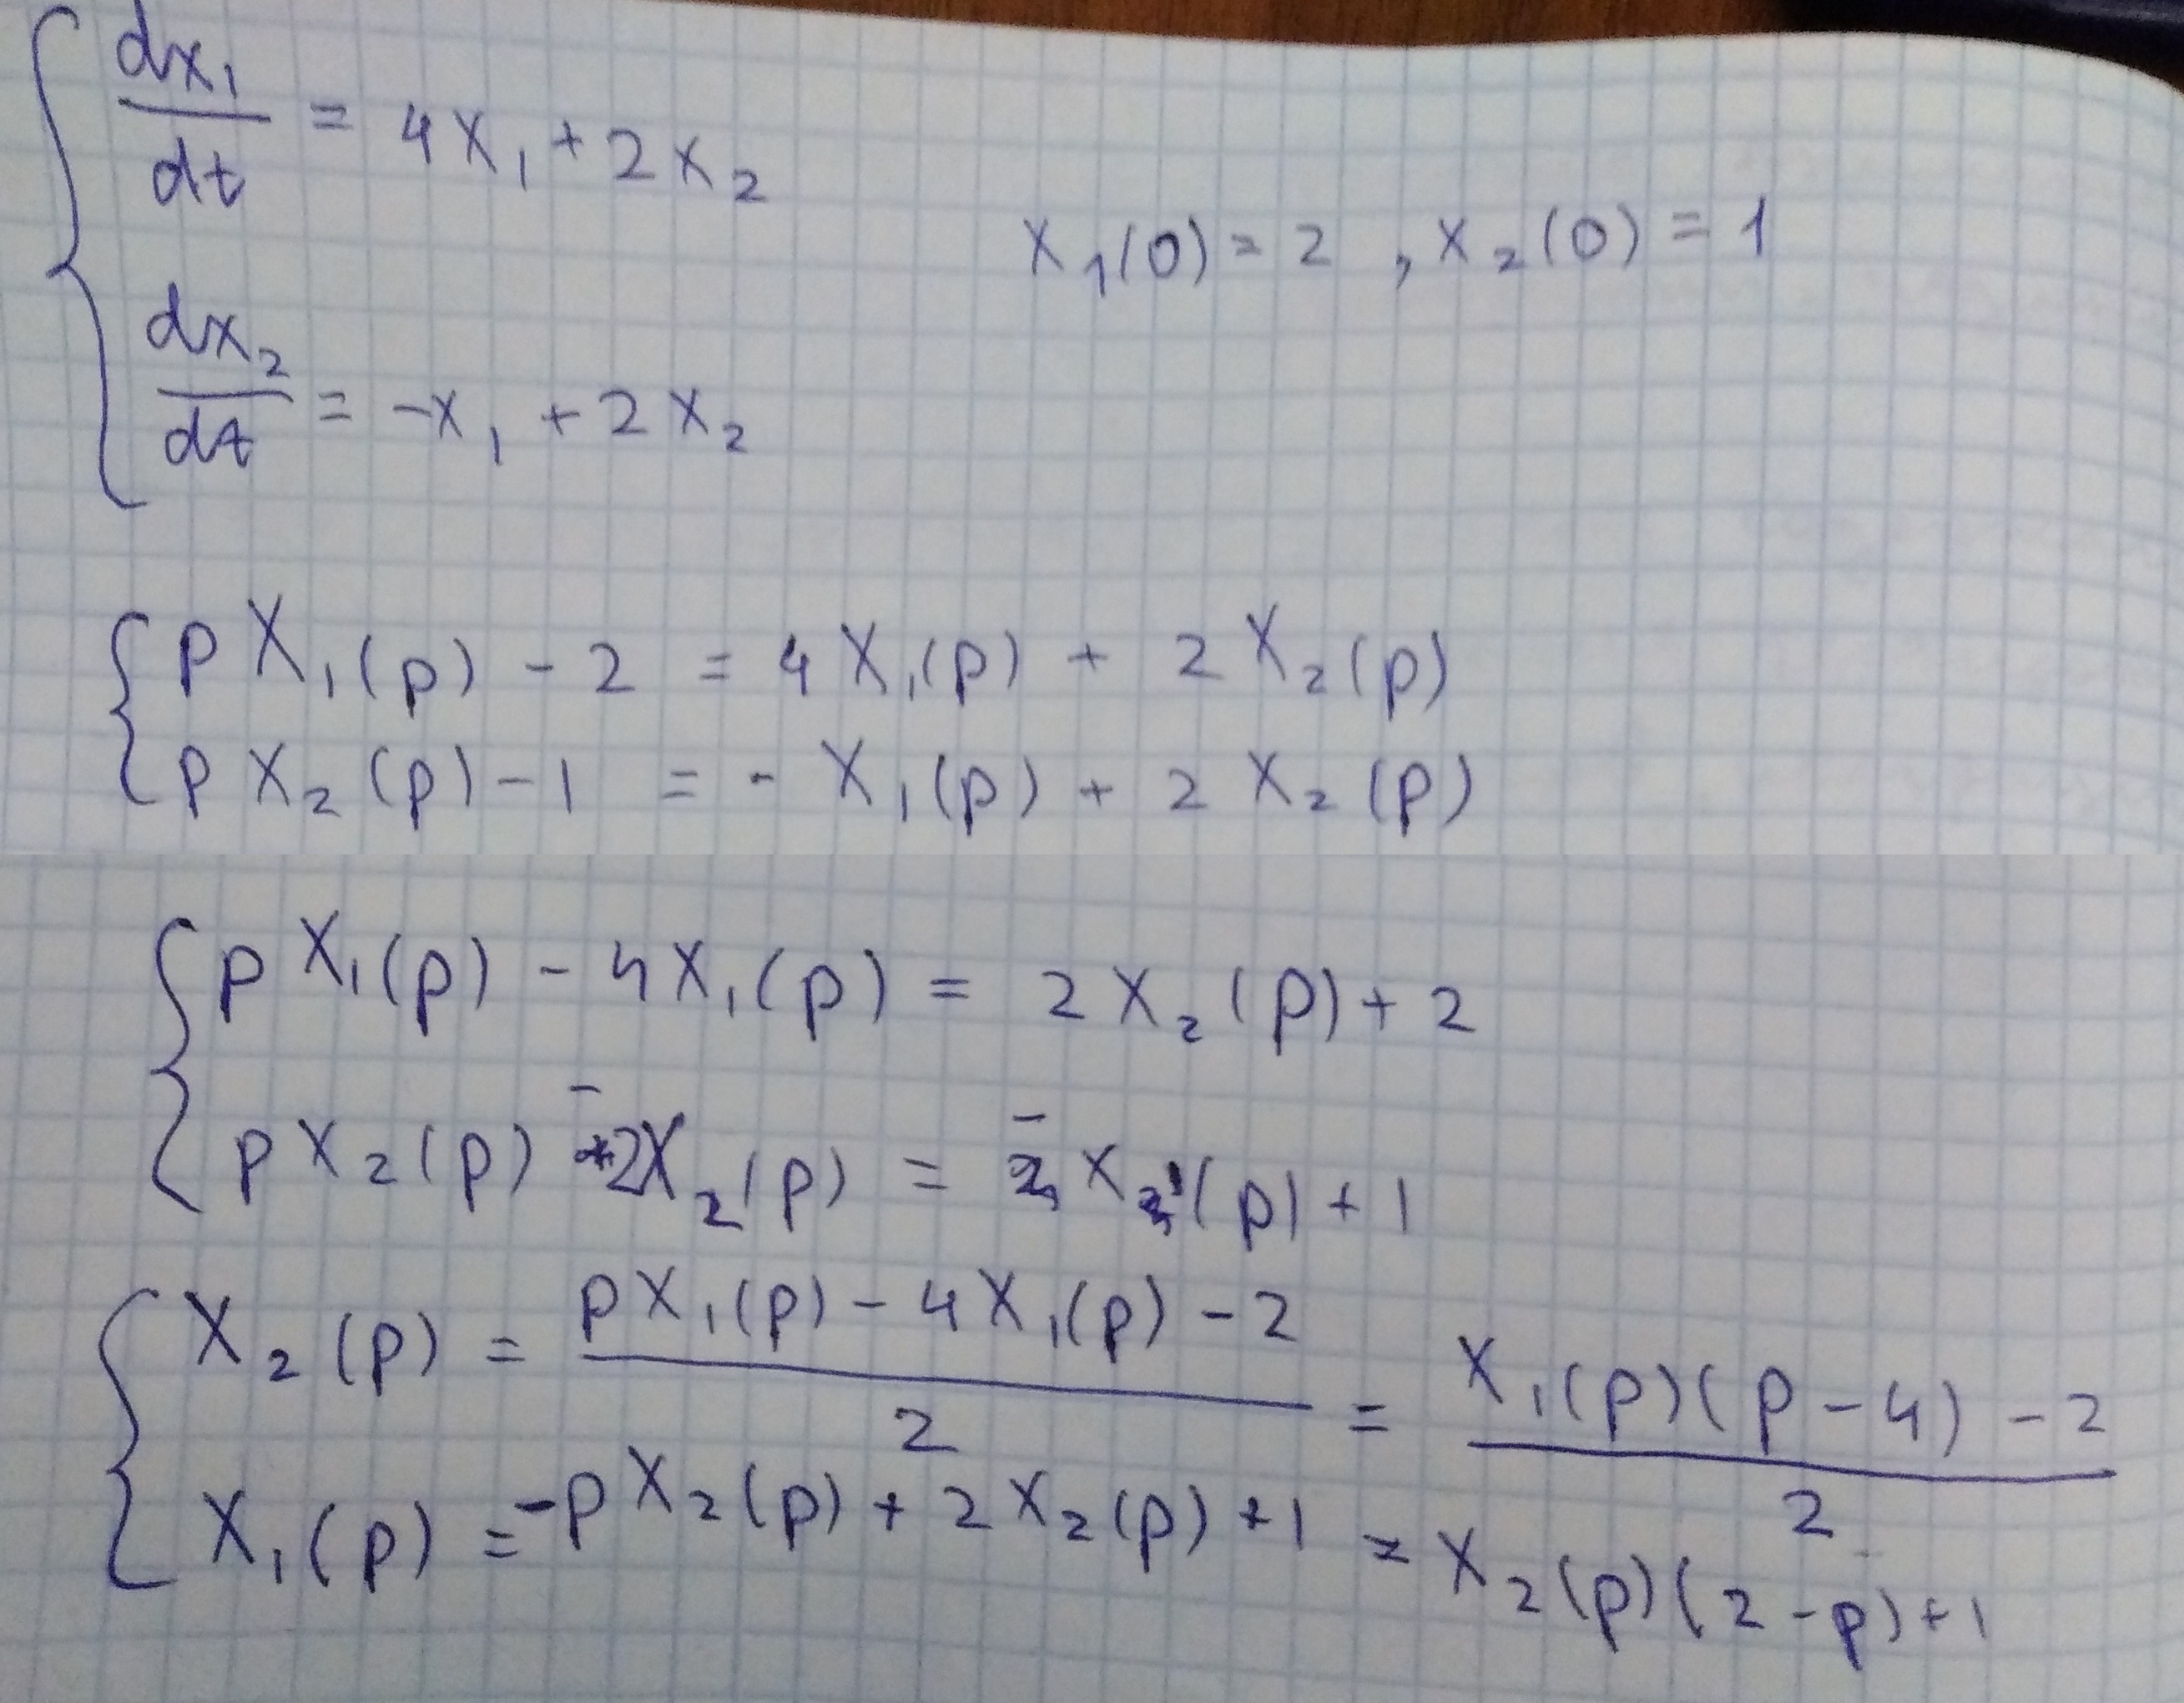 dx₁/dt = 4x₁ + 2x₂
x₁(0) = 2 , x₂(0) = 1
dx₂/dt = -x₁ + 2x₂
p X₁(p) - 2 = 4 X₁(p) + 2 X₂(p)
p X₂(p) - 1 = - X₁(p) + 2 X₂(p)
p X₁(p) - 4X₁(p) = 2 X₂(p) + 2
p X₂(p) - 2X₂(p) = - X₁(p) + 1
X₂(p) = (pX₁(p) - 4X₁(p) - 2)/2 = (X₁(p)(p - 4) - 2)/2
X₁(p) = -p X₂(p) + 2 X₂(p) + 1 = X₂(p)(2 - p) + 1